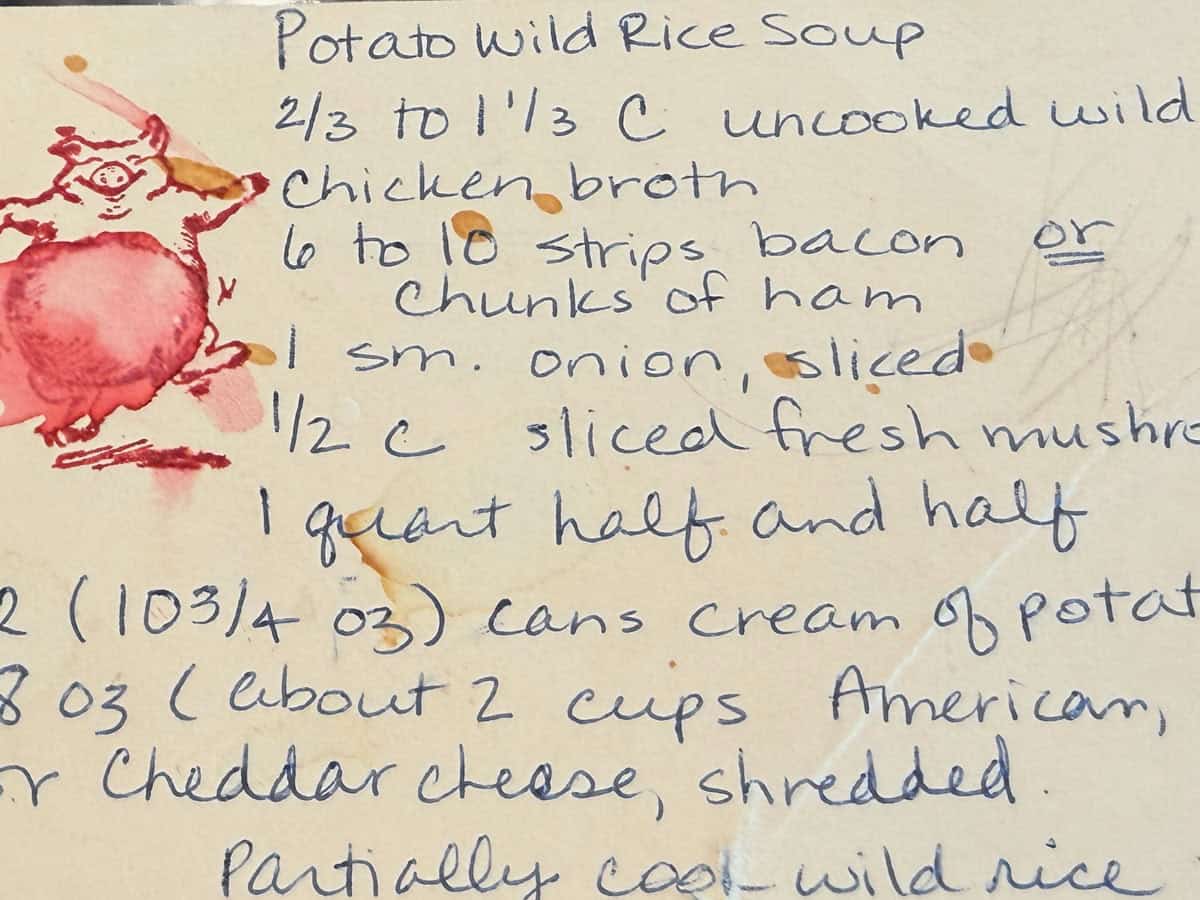 Potato Wild Rice Soup
2/3 to 1 1/3 C uncooked wild
Chicken broth
6 to 10 strips bacon or
Chunks of ham
1 sm. onion, sliced
1/2 C sliced fresh mushro
1 quart half and half
2 (10 3/4 oz) cans cream of potat
8 oz (about 2 cups American,
or Cheddar cheese, shredded.
Partially cook wild rice